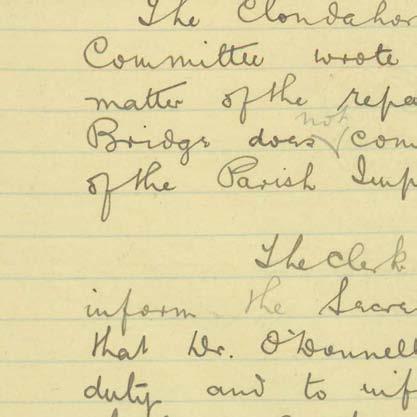 The Clondahor
Committee wrote
matter of the repa
Bridge does not com
of the Parish Imp
The Clerk
inform the Secre
that Dr. O'Donnell
duty and to inf